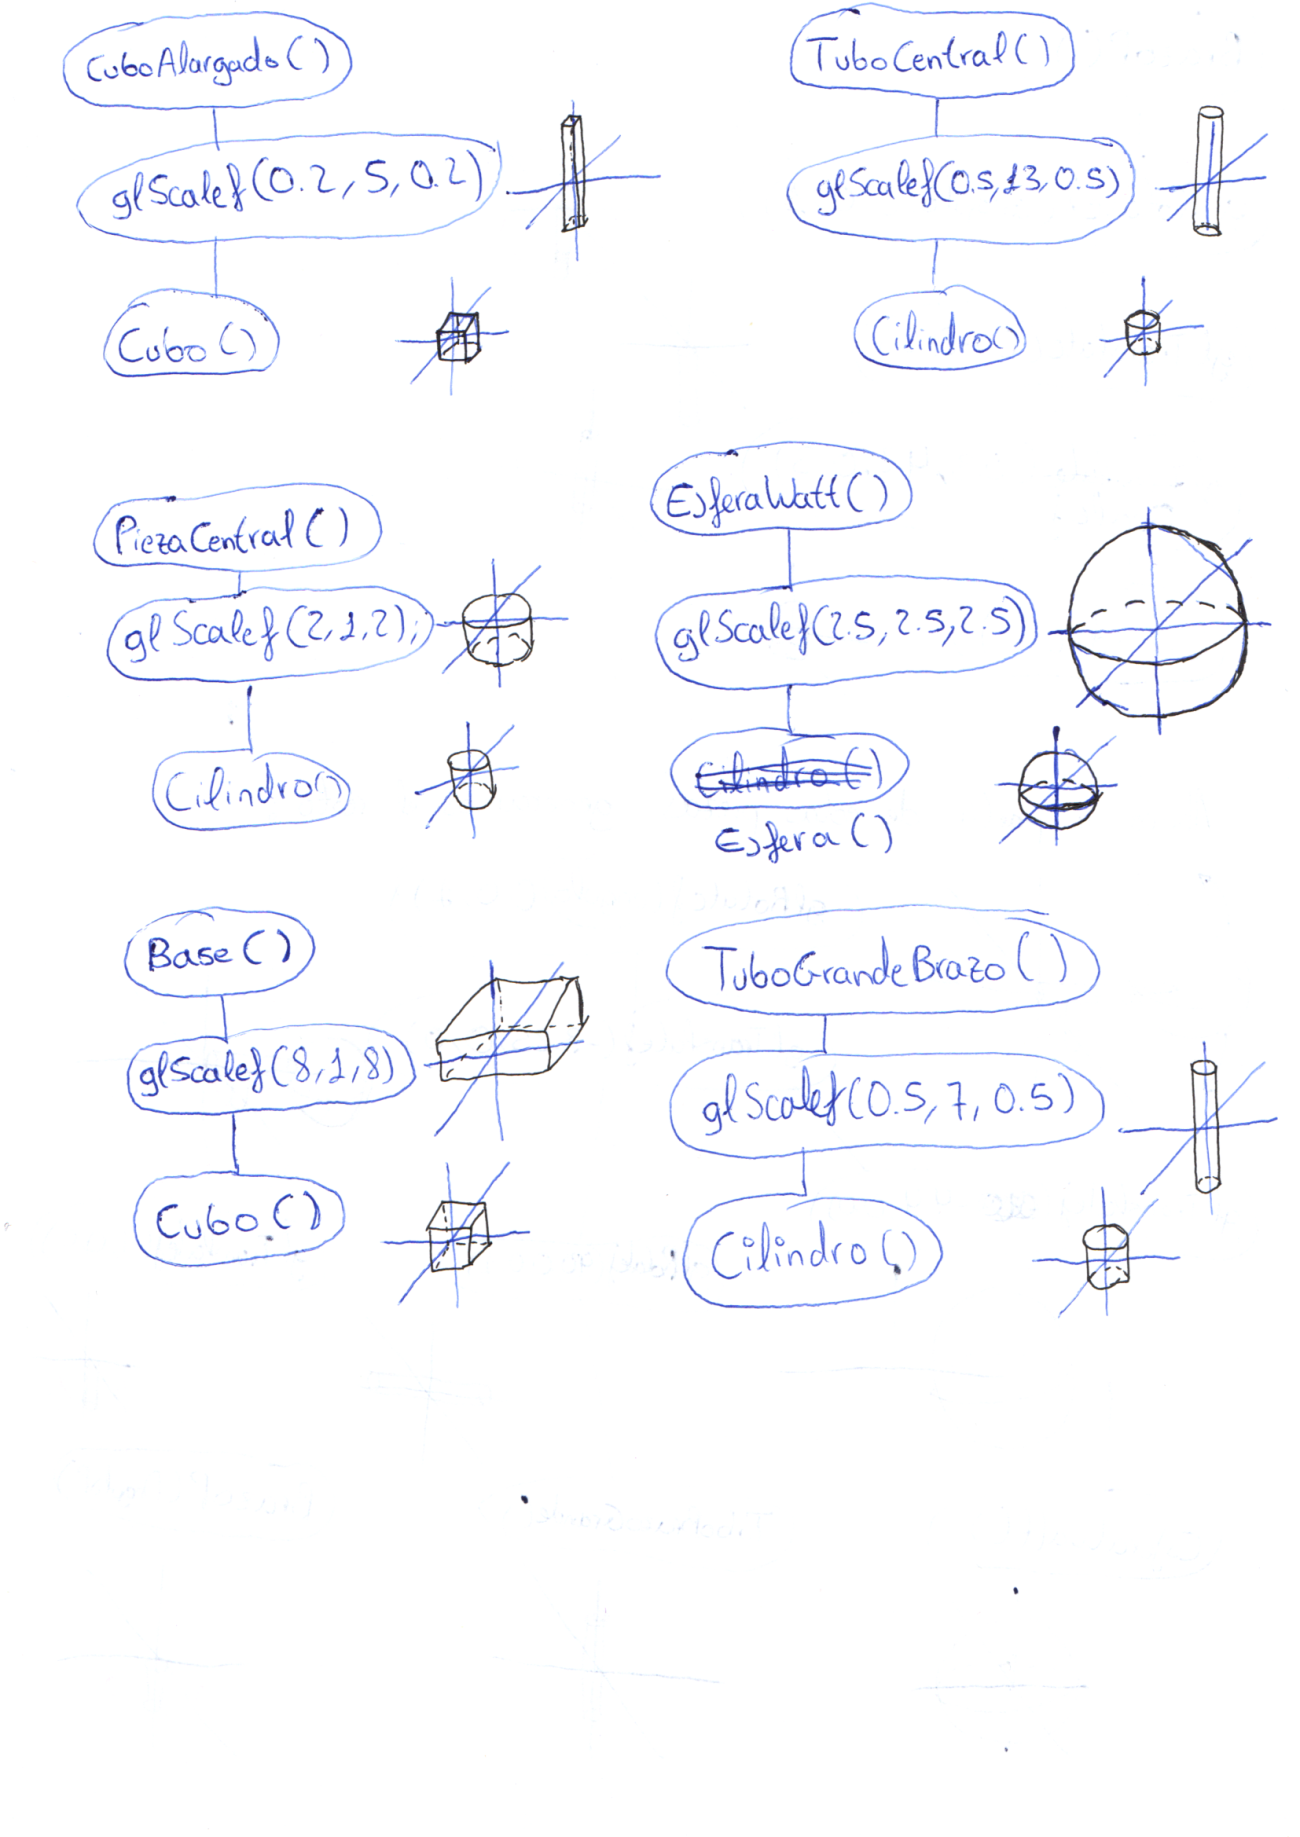 CuboAlargado()
glScalef(0.2, 5, 0.2)
Cubo()
TuboCentral()
glScalef(0.5, 13, 0.5)
Cilindro()
PiezaCentral()
glScalef(2,1,2);
Cilindro()
EsferaWatt()
glScalef(2.5, 2.5, 2.5)
Cilindro()
Esfera()
Base()
glScalef(8,1,8)
Cubo()
TuboGrandeBrazo()
glScalef(0.5, 7, 0.5)
Cilindro()